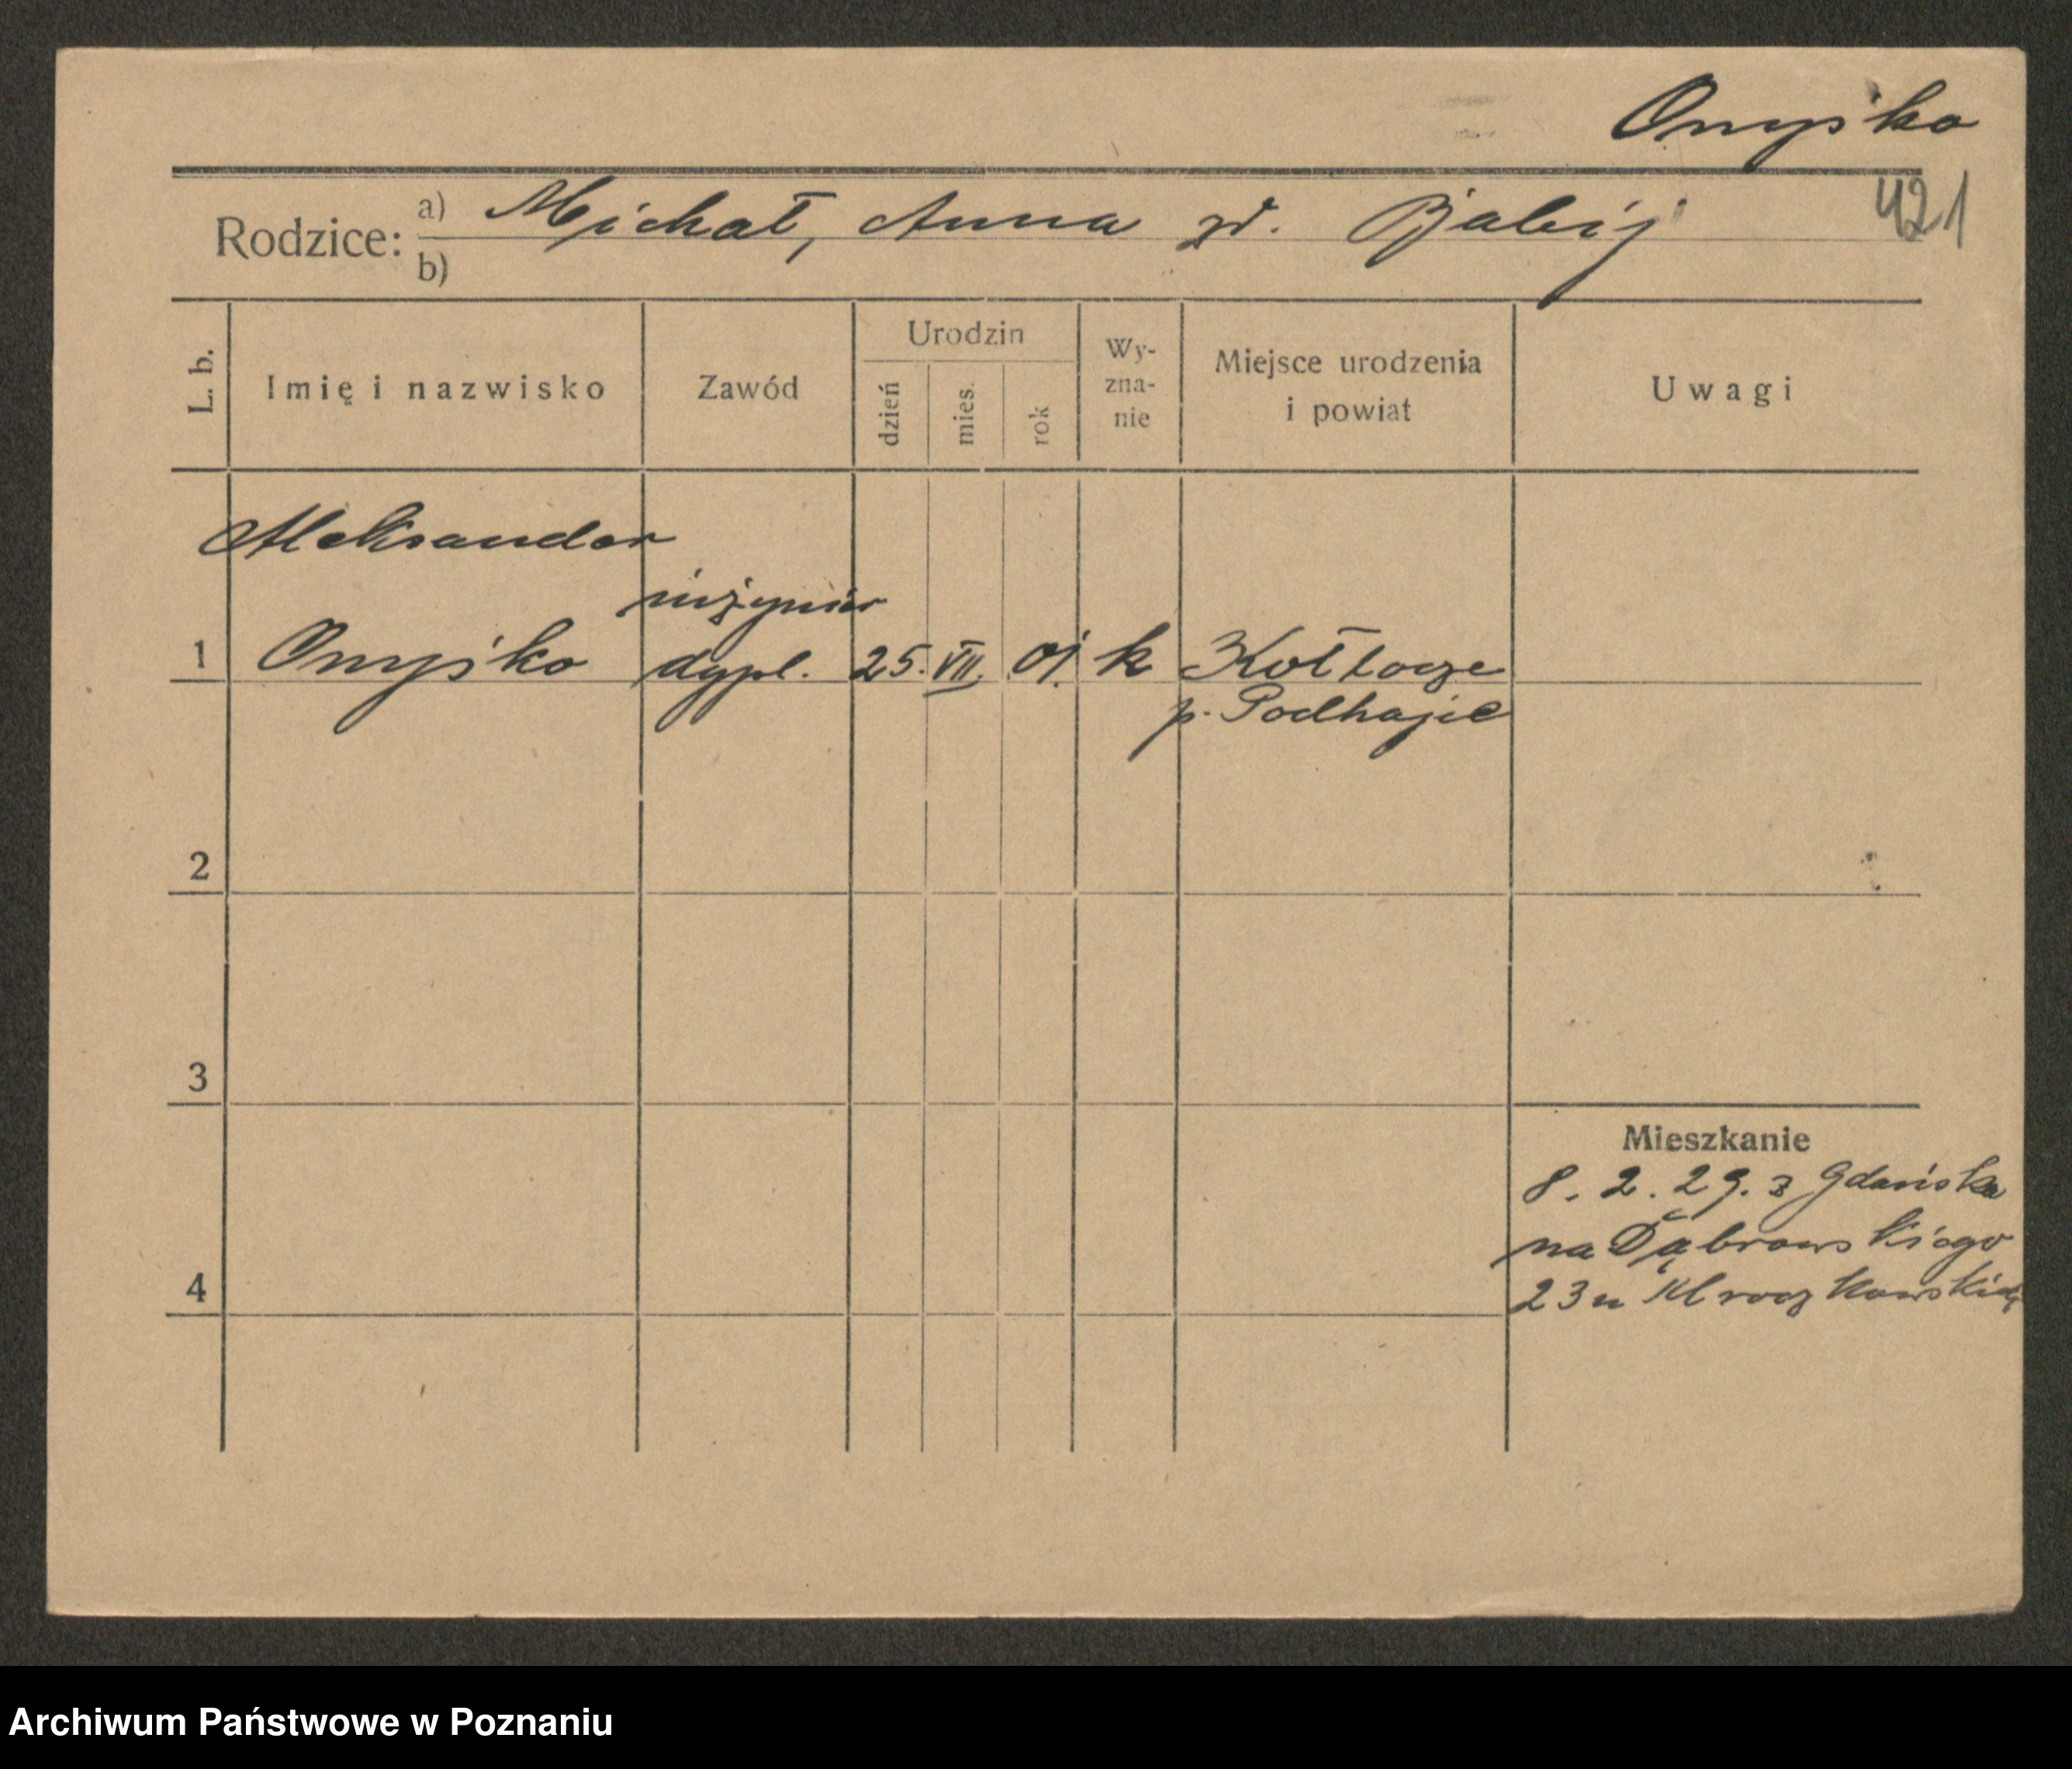 Onyśko
421
Rodzice: a) Michał, Anna zd. Bjalij
b)
L. b. Imię i nazwisko Zawód Urodzin dzień mies. rok Wy-zna-nie Miejsce urodzenia i powiat Uwagi
Aleksander
inżynier
1 Onyśko dypl. 25. VII. 01. k
p. Podhajce
2
3
Mieszkanie
8. 2. 29. z Gdańska
na Dąbrowskiego
4 23 u
Archiwum Państwowe w Poznaniu